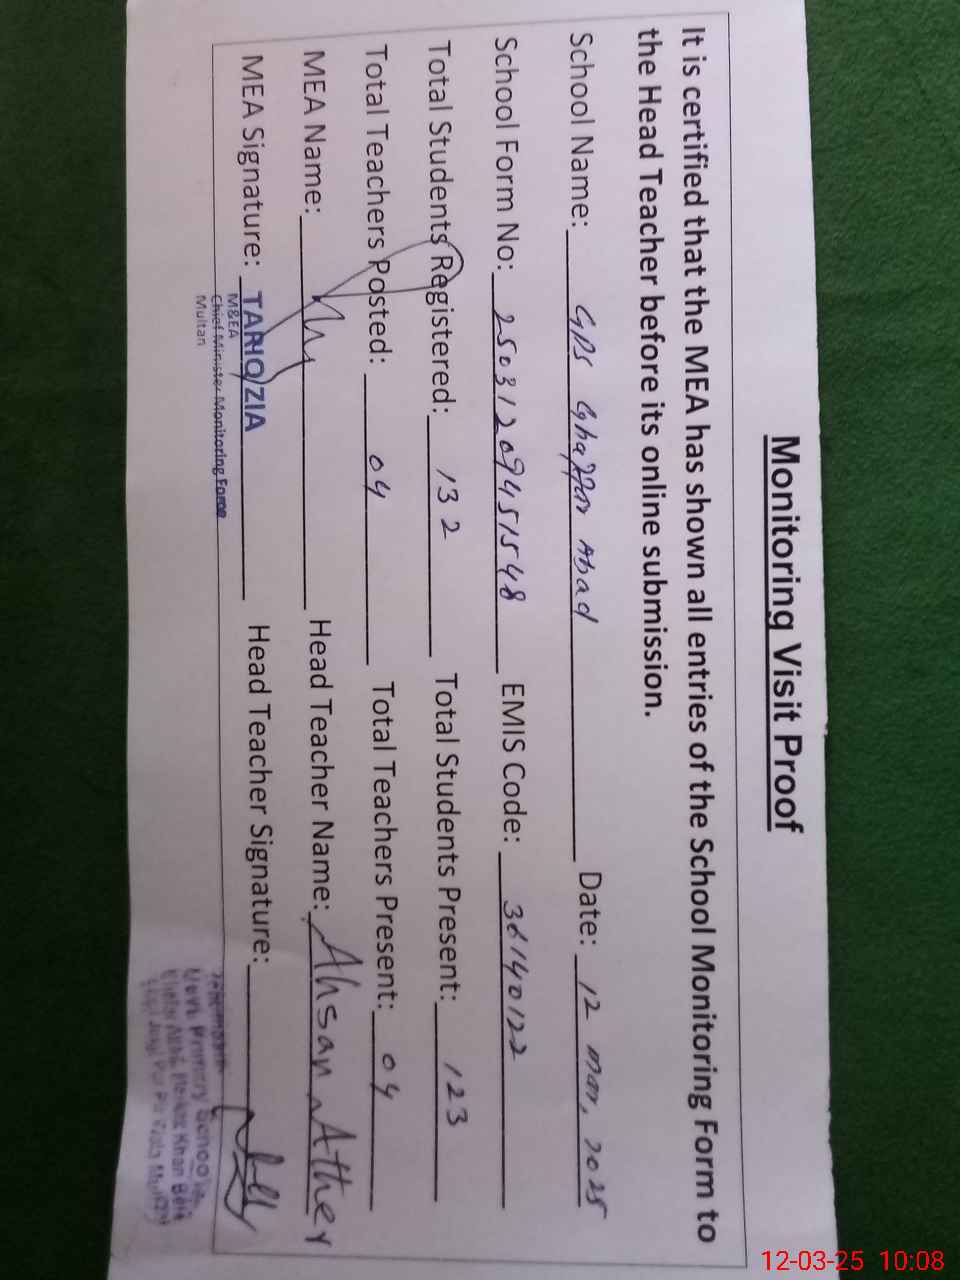 Monitoring Visit Proof
It is certified that the MEA has shown all entries of the School Monitoring Form to
the Head Teacher before its online submission.
School Name: GPS Ghaffar Abad Date: 12 mar, 2025
School Form No: 25031209451548 EMIS Code: 36140122
Total Students Registered: 132 Total Students Present: 123
Total Teachers Posted: 04 Total Teachers Present: 04
MEA Name: Head Teacher Name: Ahsan Ather
MEA Signature: TARIQ ZIA Head Teacher Signature:
M&EA
Chief Minister Monitoring Force
Multan
Primary School
Khan Bela
12-03-25 10:08